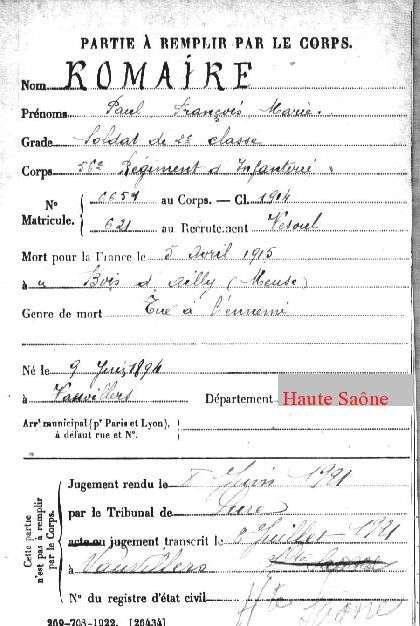 PARTIE À REMPLIR PAR LE CORPS.
Nom ROMAIRE
Prénoms Paul François Marie.
Grade Soldat de 2e classe
Corps 56e Régiment d'Infanterie
N° 6659 au Corps. — Cl. 1914
Matricule. 621 au Recrutement Vesoul
Mort pour la France le 5 Avril 1915
à Bois d'Ailly (Meuse)
Genre de mort Tué à l'ennemi
Né le 9 Juin 1894
à Vauvillers Département Haute Saône
Arrt municipal (pr Paris et Lyon),
à défaut rue et N°.
Cette partie
n'est pas à remplir
par le Corps.
Jugement rendu le Juin 1921
par le Tribunal de Lure
acte ou jugement transcrit le 8 Juillet 1921
à Vauvillers
N° du registre d'état civil Hte Saône
269-708-1922. [26434]